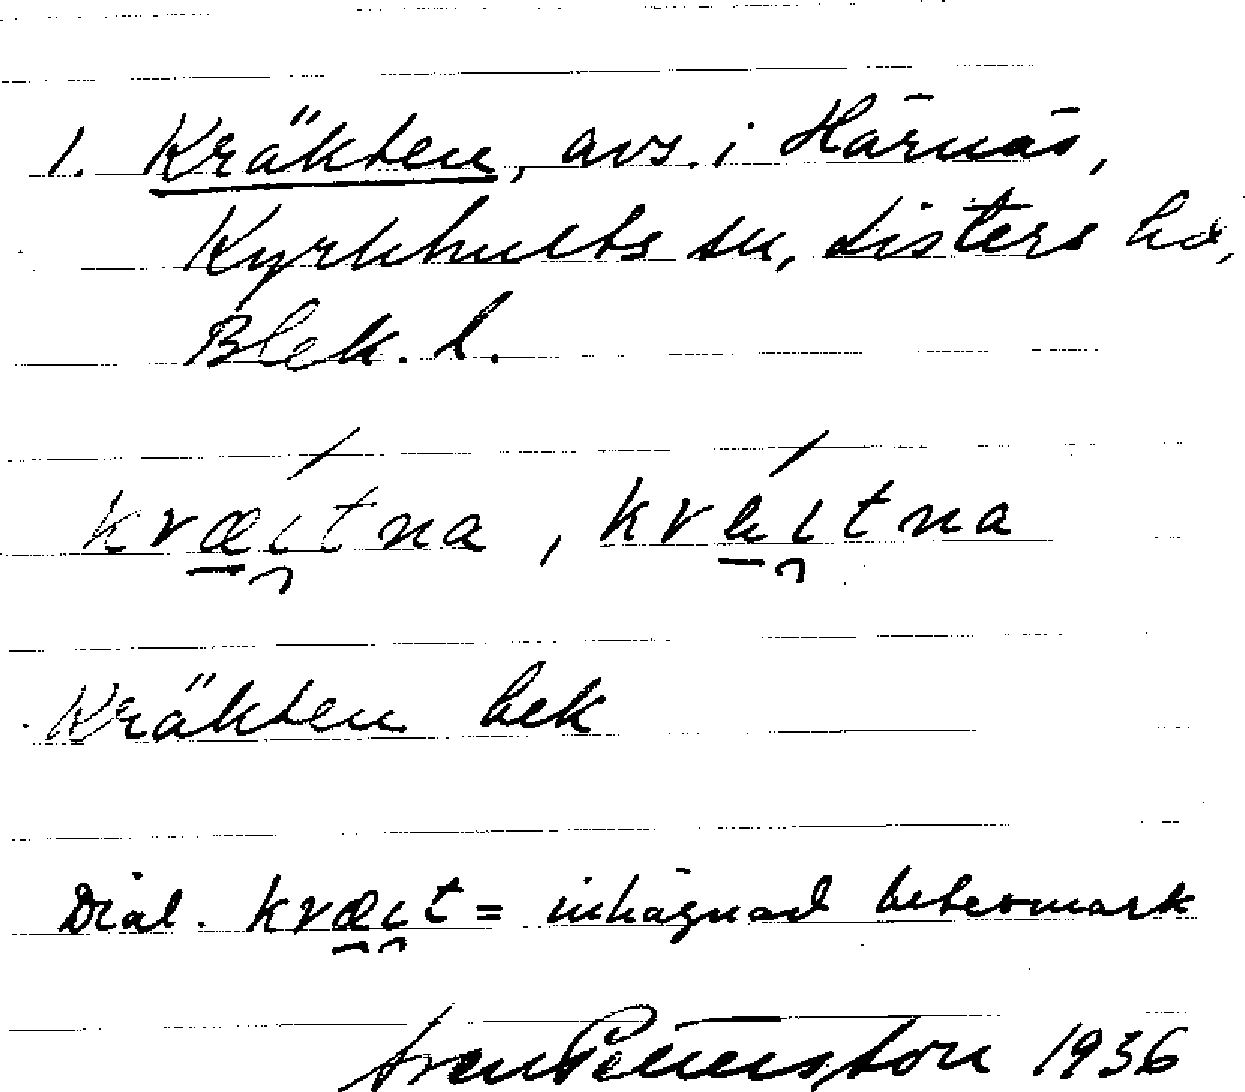 1. Kräkten, avs. i Härnäs,
Kyrkhults sn, Listers hd,
Blek. l.
kvæi̯tna, kvei̯tna
Kräkten bek
Dial. kvæi̯t = inhägnad betesmark
Sven Pettersson 1936